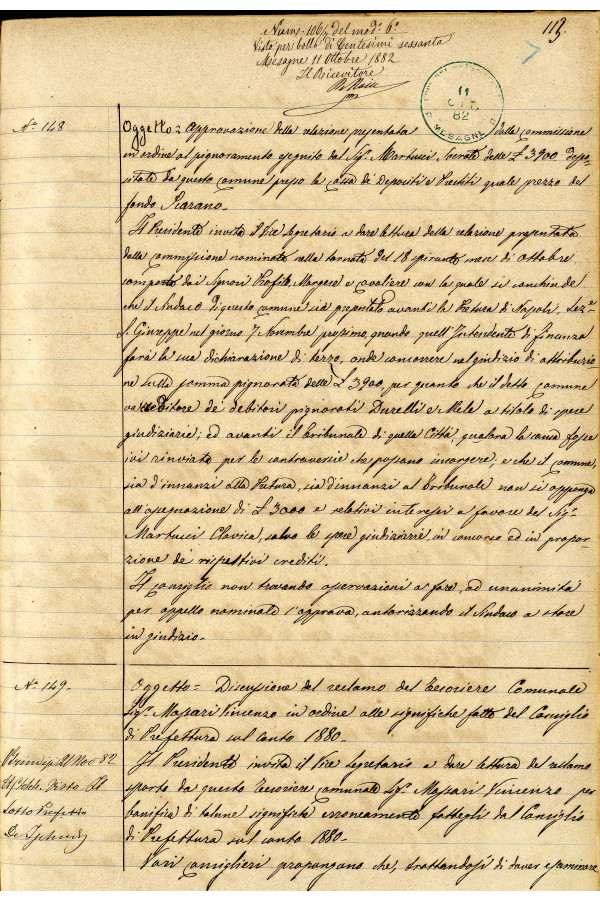 Num. 106/2 del mod.º 6º
Visto per bollo di Centesimi sessanta
Mesagne 11 Ottobre 1882
Il Ricevitore
113.
11
OTT.
82
MESAGNE
Nº 148
Oggetto = Approvazione della relazione presentata dalla commissione
in ordine al pignoramento eseguito dal Sigr. Martucci, Cerato delle £ 3900 depo-
sitate da questo comune presso la cassa di Depositi e Prestiti quale prezzo del
fondo Scazano.
Il Presidente invita il Vice Segretario a dare lettura della relazione presentata
dalla commissione nominata nella tornata del 18 spirante mese di Ottobre
composta dai Signori Profilo, Margese e Cavaliere con la quale si conchiude
che il Sindaco di questo comune sia presentato avanti la Pretura di Napoli, Sez.e
S. Giuseppe nel giorno 7 Novembre prossimo, quando quell'Intendente di finanza
farà la sua dichiarazione di terzo, onde concorrere nel giudizio di attribuzio-
ne sulla somma pignorata delle £ 3900, per quanto che il detto Comune
va creditore de' debitori pignorati Duzelli e Mele a titolo di spese
giudiziarie; ed avanti il tribunale di quella Città, qualora la causa fosse
ivi rinviata per le controversie che possano insorgere, e che il comune,
sia d'innanzi alla Pretura, sia d'innanzi al Tribunale non si opponga
all'assegnazione di £ 3000 e relativi interessi a favore del Sigr.
Martucci Clavica, salvo le spese giudiziarie, in concorso ed in propor-
zione de' rispettivi crediti.
Il consiglio non trovando osservazioni a fare, ad unanimità
per appello nominale l'approva, autorizzando il Sindaco a stare
in giudizio.
Nº 149.
Oggetto = Discussione del reclamo del Tesoriere Comunale
Sigr. Massari Vincenzo in ordine alle significhe fatte dal Consiglio
di Prefettura sul conto 1880.
Brindisi 21 Nov. 82
Visto Il
Sotto Prefetto
Il Presidente invita il Vice Segretario a dare lettura del reclamo
sporto da questo Tesoriere comunale Sigr. Massari Vincenzo per
bonifica di talune significhe erroneamente fattegli dal Consiglio
di Prefettura sul conto 1880.
Vari consiglieri propongono che, trattandosi di dover esaminare